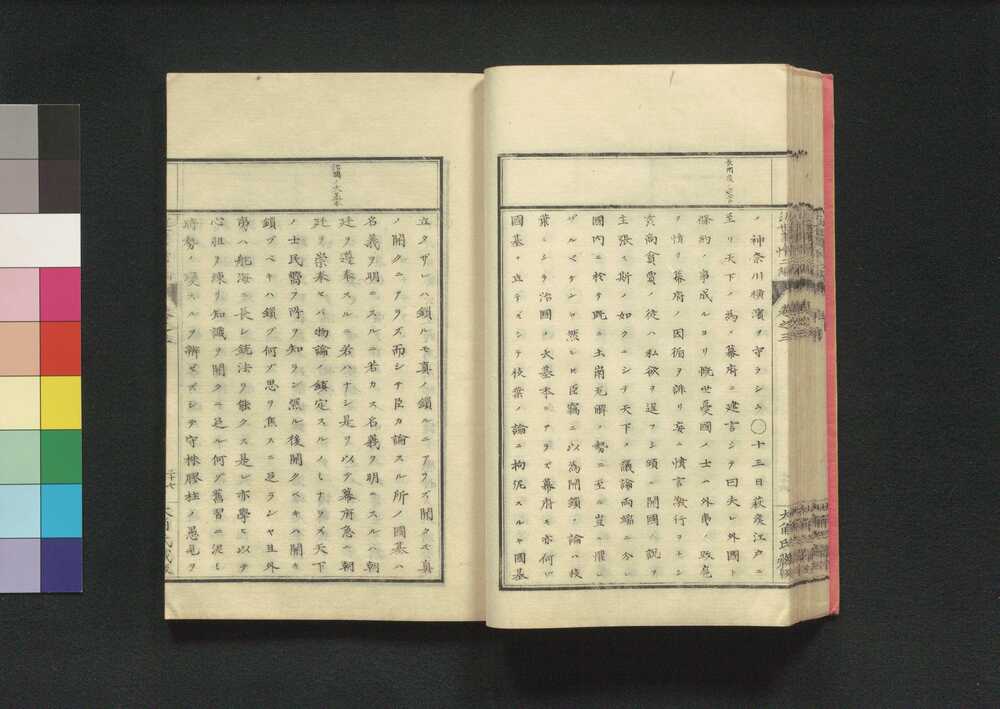 ノ神奈川横濱ヲ守ラシム〇十三日萩侯江戸ニ
至リ天下ノ為メ幕府ニ建言シテ曰夫レ外國ト
條約ノ事成ルヨリ慨世憂國ノ士ハ外夷ノ
ヲ憤リ幕府ノ因循ヲ誹リ妄ニ憤言激行ヲトシ
主張ス斯ノ如クニシテ天下ノ議論両端ニ分レ
國内ニ於タ既ニ土崩瓦解ノ勢ニ至ル豈ニ懼レ
ザルベケンヤ然レヒ臣竊ニ以為開鎖ノ論ハ枝
葉ニシテ治國ノ大基本ニアラズ幕府モ亦何ゾ
國基ノ立テズシテ枝葉ノ論ニ拘泥スルヤ國基
治國ノ大基本
立タザレハ鎖ルモ真ノ鎖ルニアラズ開クモ真
ノ開クニアラズ而シテ臣カ論スル所ノ國基ハ
名義ヲ明ニスルニ若カス名義ヲ明ニスルハ朝
廷ヲ遵奉スルニ若ハナシ是ヲ以テ幕府急ニ朝
廷ヲ崇奉セバ物論ノ鎮定スルノミナラズ天下
ノ士民嚮フ所ヲ知ラン然ル後開クベキハ開キ
鎖ヅベキハ鎖ヅ何ゾ思ヲ焦スニ足ランヤ且外
夷ハ航海ニ長シ銃法ヲ能クス是レ亦學ビ以テ
心胆ヲ練リ知識ヲ開クニ足ル何ゾ舊習ニ泥ミ
時勢ノ変スルヲ辨ゼズシテ守株膠柱ノ愚見ヲ